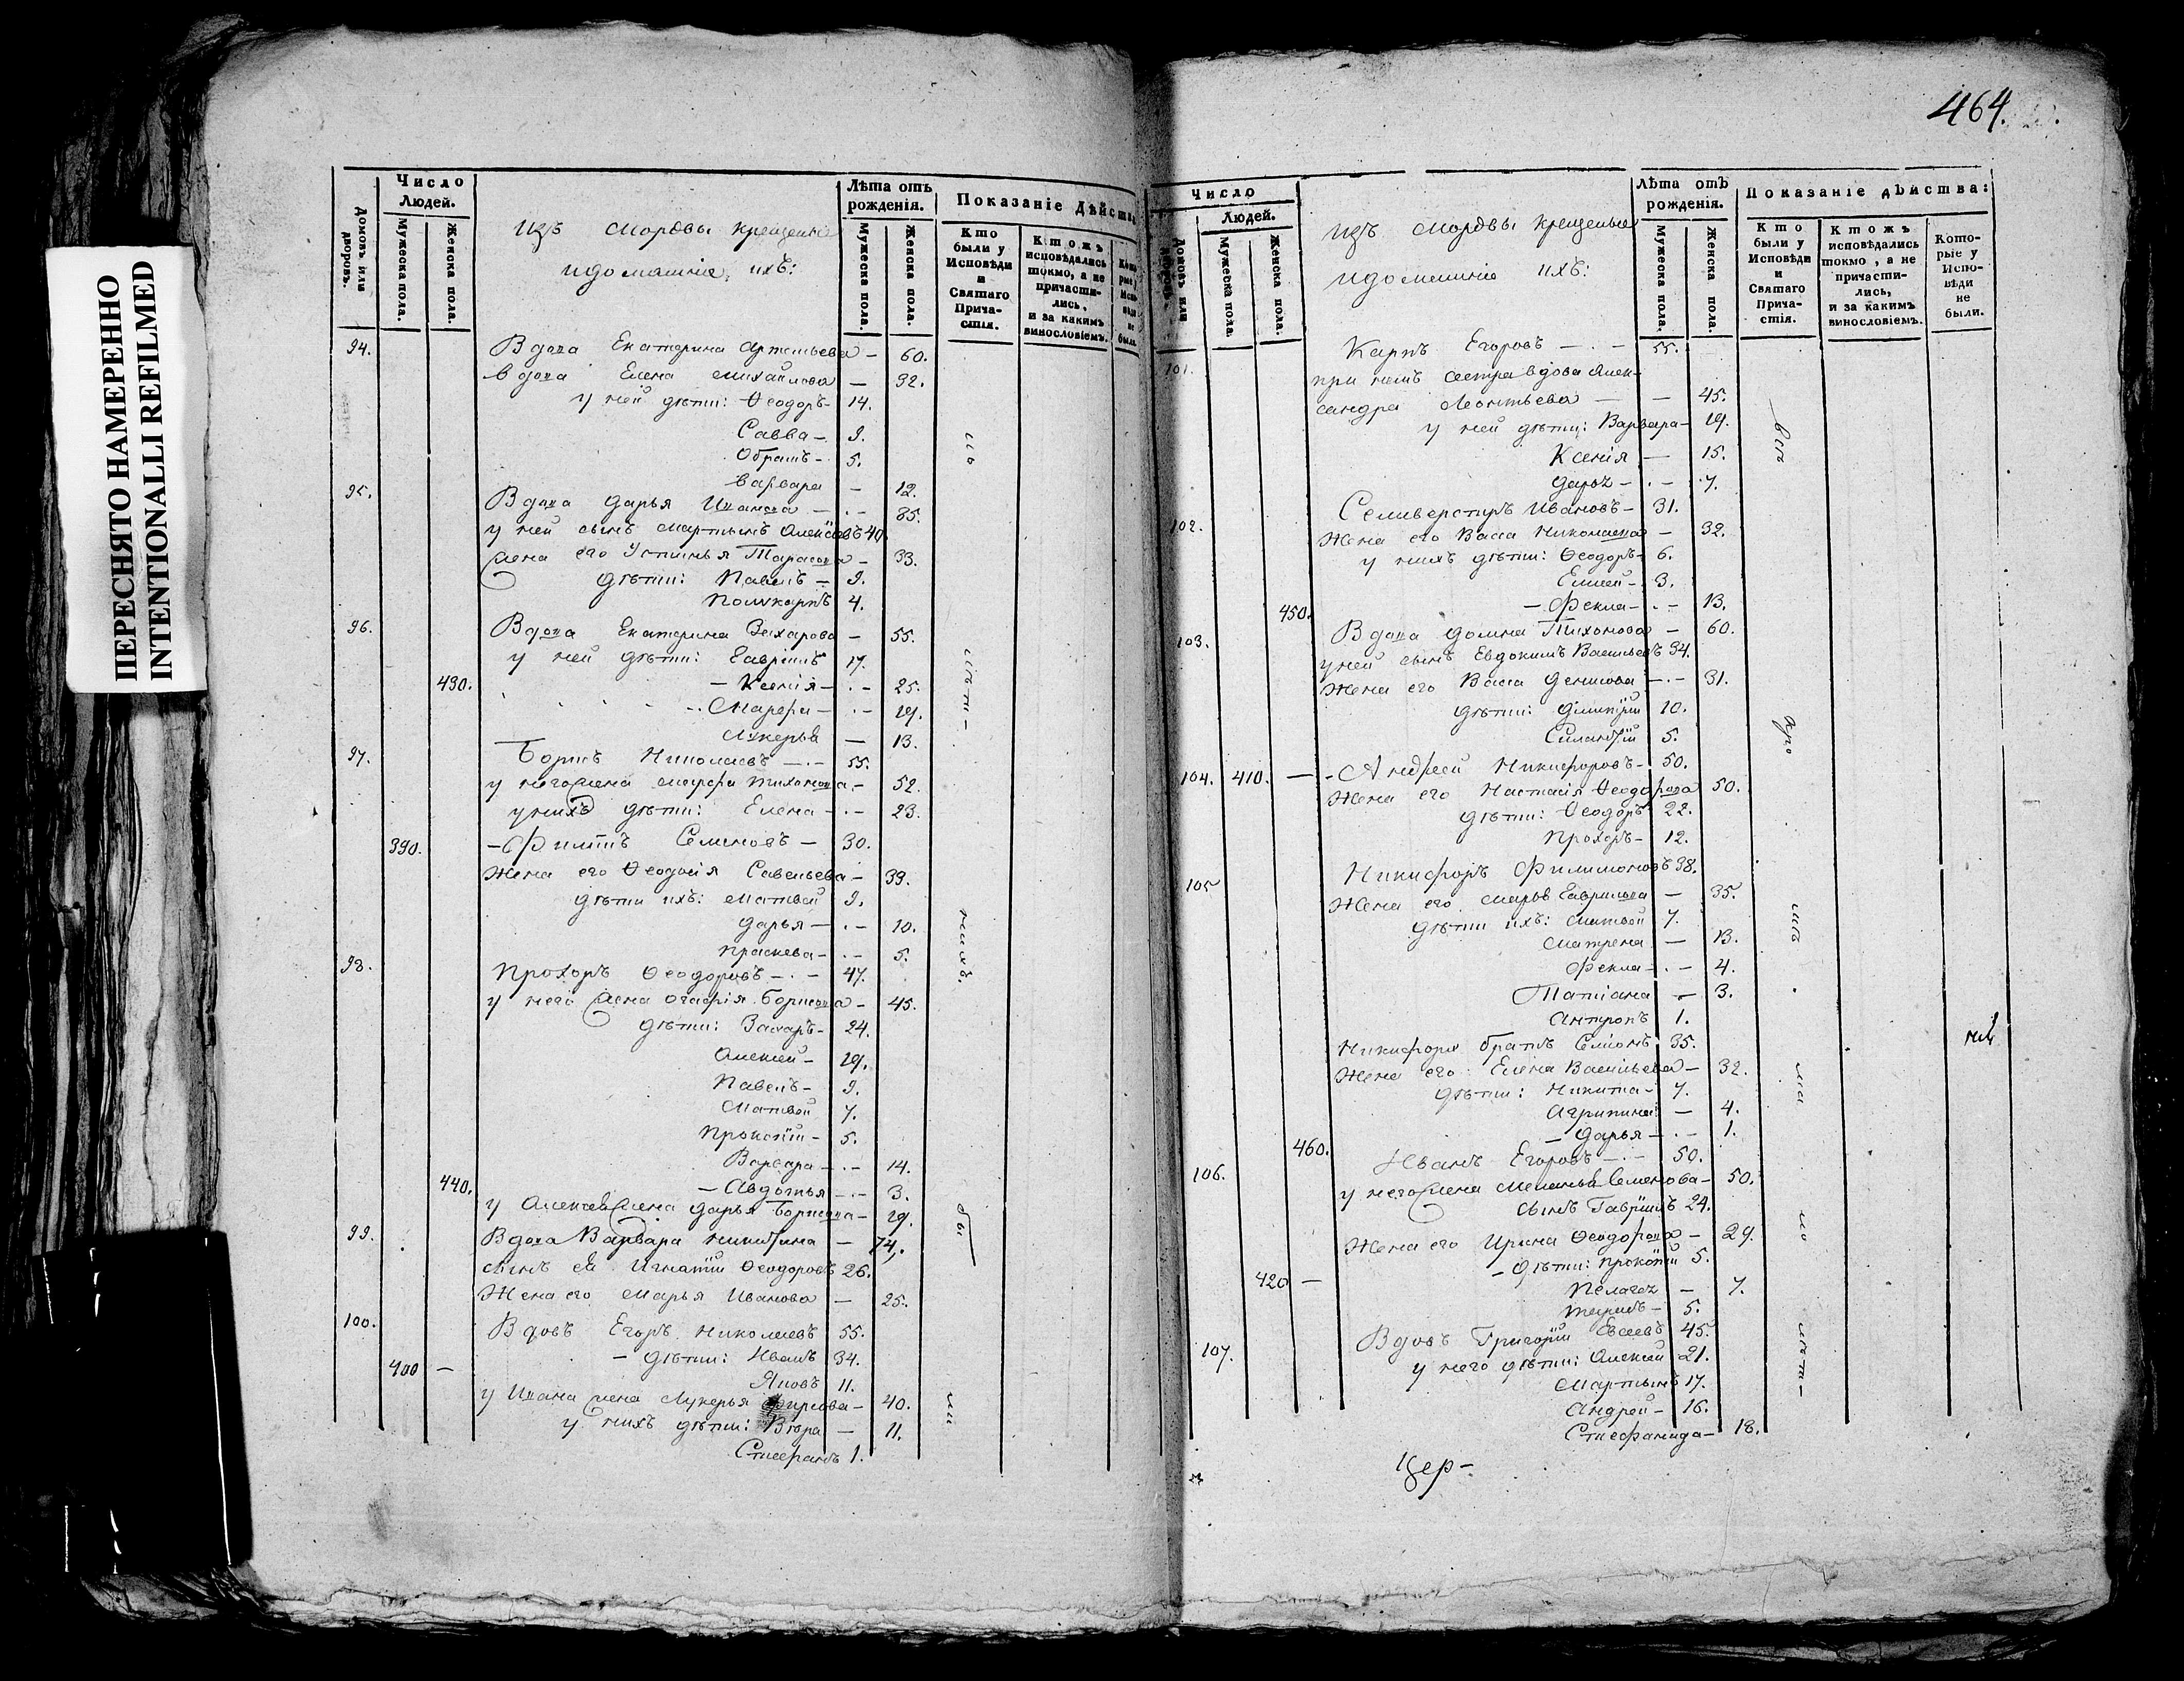 464.
ПЕРЕСНЯТО НАМЕРЕННО
INTENTIONALLI REFILMED
Домовъ или дворовъ.
Число Людей.
Мужеска пола.
Женска пола.
Изъ Мордвы крещеные
и домашніе ихъ:
Лѣта отъ рожденія.
Мужеска пола.
Женска пола.
Показаніе Дѣйств
Кто были у Исповѣди и Святаго Прича-стія.
Ктожъ исповѣдались токмо, а не причасти-лись, и за какимъ винословіемъ.
94. Вдова Екатерина Артемьева — 60.
Вдова Елена Михайлова — 32.
у ней дѣти: Ѳеодоръ 14.
Савва — 9.
Обрамъ — 5.
Варвара — 12.
95. Вдова Дарья Иванова — 85.
у ней сынъ Мартынъ Алексѣевъ 40.
Жена его Устинья Тарасова — 33.
дѣти: Павелъ — 9.
Поликарпъ 4.
96. Вдова Екатерина Захарова — 55.
у ней дѣти: Гавріилъ 17.
430. — Ксенія — 25.
Марфа — 19.
Лукерья — 13.
97. Борисъ Николаевъ — 55.
у него жена Марфа Тихонова — 52.
у нихъ дѣти: Елена — 23.
390. — Филипъ Семеновъ — 30.
Жена его Ѳеодосія Савельева — 39.
дѣти ихъ: Матвей 9.
Дарья — 10.
Праскева — 5.
98. Прохоръ Ѳеодоровъ — 47.
у него жена Огафія Борисова — 45.
дѣти: Захаръ — 24.
Алексей — 19.
Павелъ — 9.
Матвей 7.
Прокопій — 5.
Варвара — 14.
440. — Авдотья — 3.
у Алексея жена Дарья Борисова — 19.
99. Вдова Варвара Никитина — 74.
сынъ ея Игнатій Ѳеодоровъ 26.
Жена его Марья Иванова — 25.
100. Вдовъ Егоръ Николаевъ 55.
400 — — дѣти: Иванъ 34.
Яковъ 11.
у Ивана жена Лукерья — 40.
у нихъ дѣти: Вѣра — 11.
Стефанъ 1.
Домовъ или
Число Людей.
Мужеска пола.
Женска пола.
Изъ Мордвы крещеные
и домашніе ихъ:
Лѣта отъ рожденія.
Мужеска пола.
Женска пола.
Показаніе дѣйства:
Кто были у Исповѣди и Святаго Прича-стія.
Ктожъ исповѣдались токмо, а не причасти-лись, и за какимъ винословіемъ.
Кото-рые у Испо-вѣди не были.
101. Карпъ Егоровъ — 55.
при немъ сестра вдова Алек-
сандра Леонтьева — 45.
у ней дѣти: Варвара — 19.
Ксенія — 15.
Дарья — 7.
102. Селиверстръ Ивановъ — 31.
Жена его Васса Николаева — 32.
у нихъ дѣти: Ѳеодоръ 6.
3.
450. — Фекла — 13.
103. Вдова Домна Тихонова — 60.
у ней сынъ Евдокимъ Васильевъ 34.
Жена его Васса Денисова — 31.
дѣти: Димитрій 10.
Силантій 5.
104. 410. — Андрей Никифоровъ — 50.
Жена его Настасія Ѳеодорова 50.
дѣти: Ѳеодоръ 22.
Прохоръ — 12.
105 Никифоръ Филимоновъ 38.
Жена его Марья Гаврилова — 35.
дѣти ихъ: Матвей 7.
Матрена — 13.
Фекла — 4.
Татіана — 3.
Антропъ 1.
Никифора братъ Семіонъ 35.
Жена его Елена Васильева — 32.
дѣти: Никита — 7.
Агрипина — 4.
460. — Дарья — 1.
106. Иванъ Егоровъ — 50.
у него жена Меланья Семенова — 50.
сынъ Гавріилъ 24.
Жена его Ирина Ѳеодорова — 29.
420 — — дѣти: Прокопій 5.
Пелагея — 7.
5.
107. Вдовъ Григорій Евсеевъ 45.
у него дѣти: Алексей 21.
Мартынъ 17.
Андрей — 16.
Стефанида — 18.
Цер-